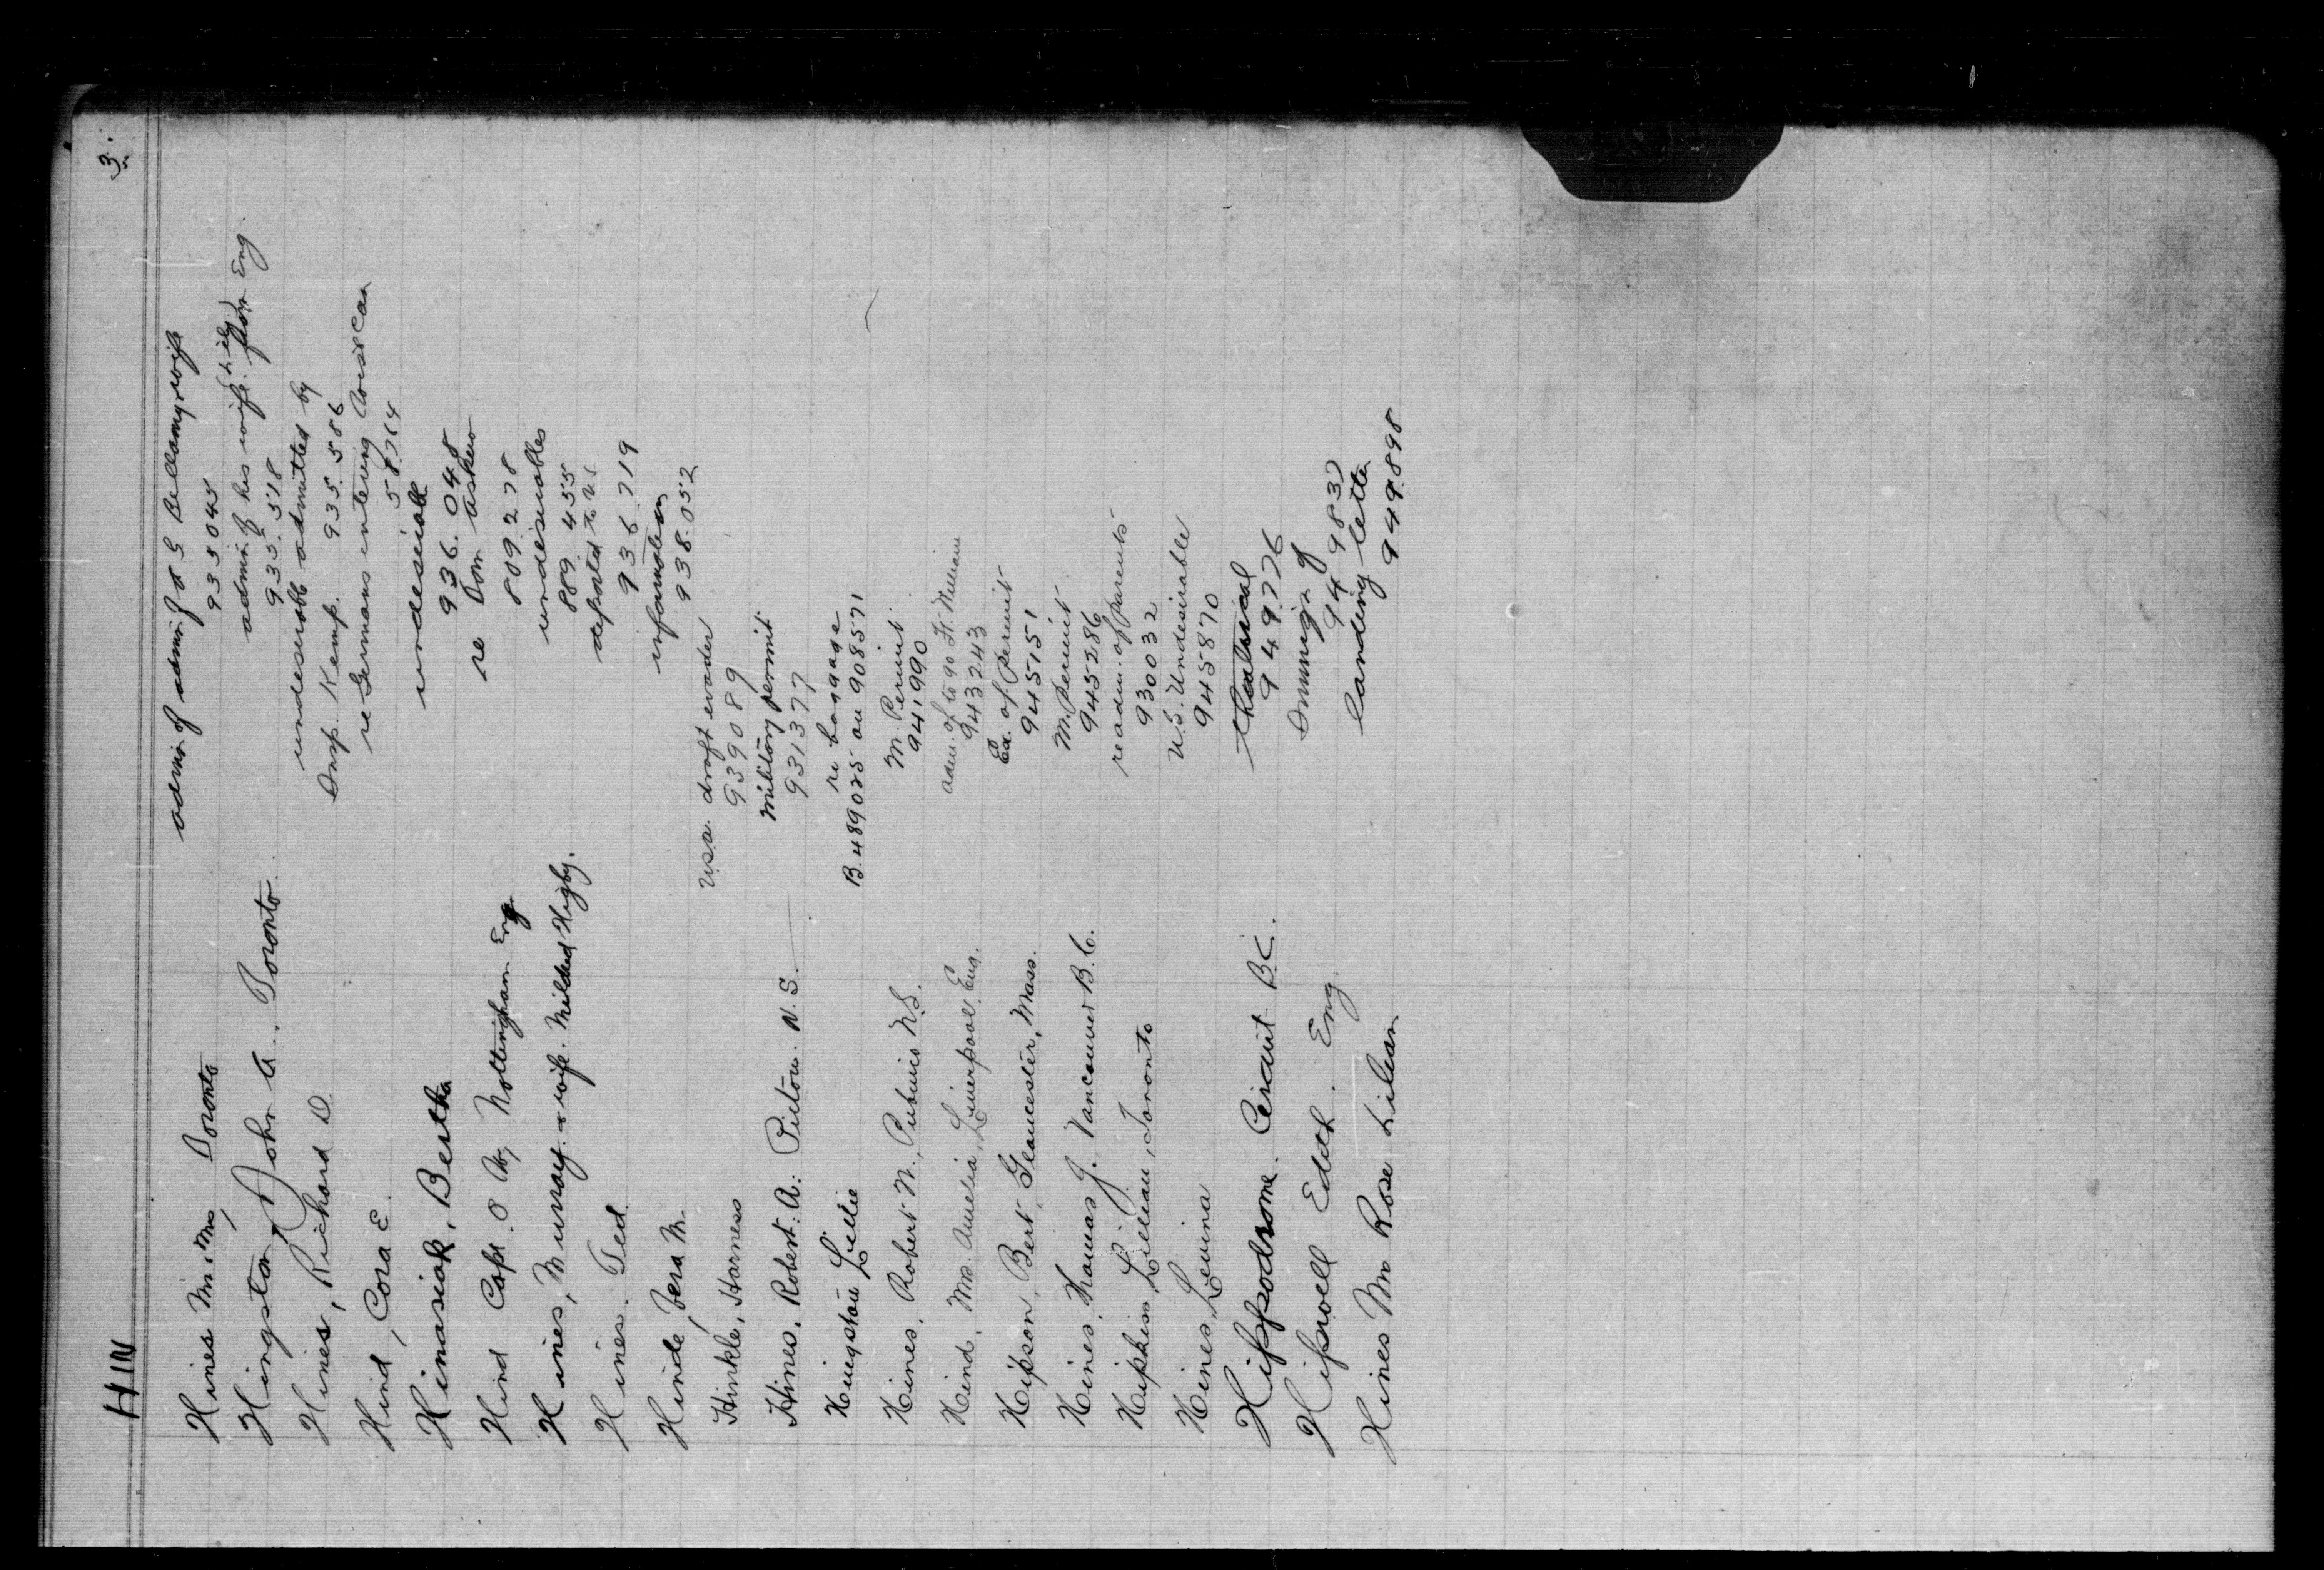 HIN 3.
Hines Mr & Mrs, Toronto
admin of admin of & G Bellamy wife
935045
Hingston, John A.. Toronto.
admin of his wife from Eng.
935.518
Hines, Richard D
undesirable admitted by
Insp. Kemp. 935.586
Hind, Cora E.
re Germans entering Can
58764
Hinasiak, Bertha
undesirable
936.048
Hind Capt. O W, Nottingham Eng
re Dom
809278
Hines, Murray & wife. Mildred Higby.
undesirables
889455
Hines. Ted
deported to U.S
936.719
Hinde, Vera M.
information
938.052
Hinkle, Harness
U.S.A. draft evader
939089
Hines. Robert. A. Pictou. N.S.
Military permit
931377
Hingston Lillie
re baggage
B.489025 on 908571
Hines. Robert N., Pubnico N.S.
M. Permit.
941990
Hind, Mrs. Amelia, Liverpool, Eng.
adm. of to go Ft. William
943243
Hipson, Bert, Gloucester, Mass.
Ex. of permit
945151
Hines, Thomas J. Vancouver B.C.
M. permit.
945286
Hipkiss, Lillian, Toronto
readm. of parents
930032
Hines, Levina
U.S. Undesirable
945870
Hippodrome Circuit B.C.
theatrical
949776
Hipwell Edith. Eng.
Immign of
949837
Hines Mrs Rose Lilean
landing letter
949.898